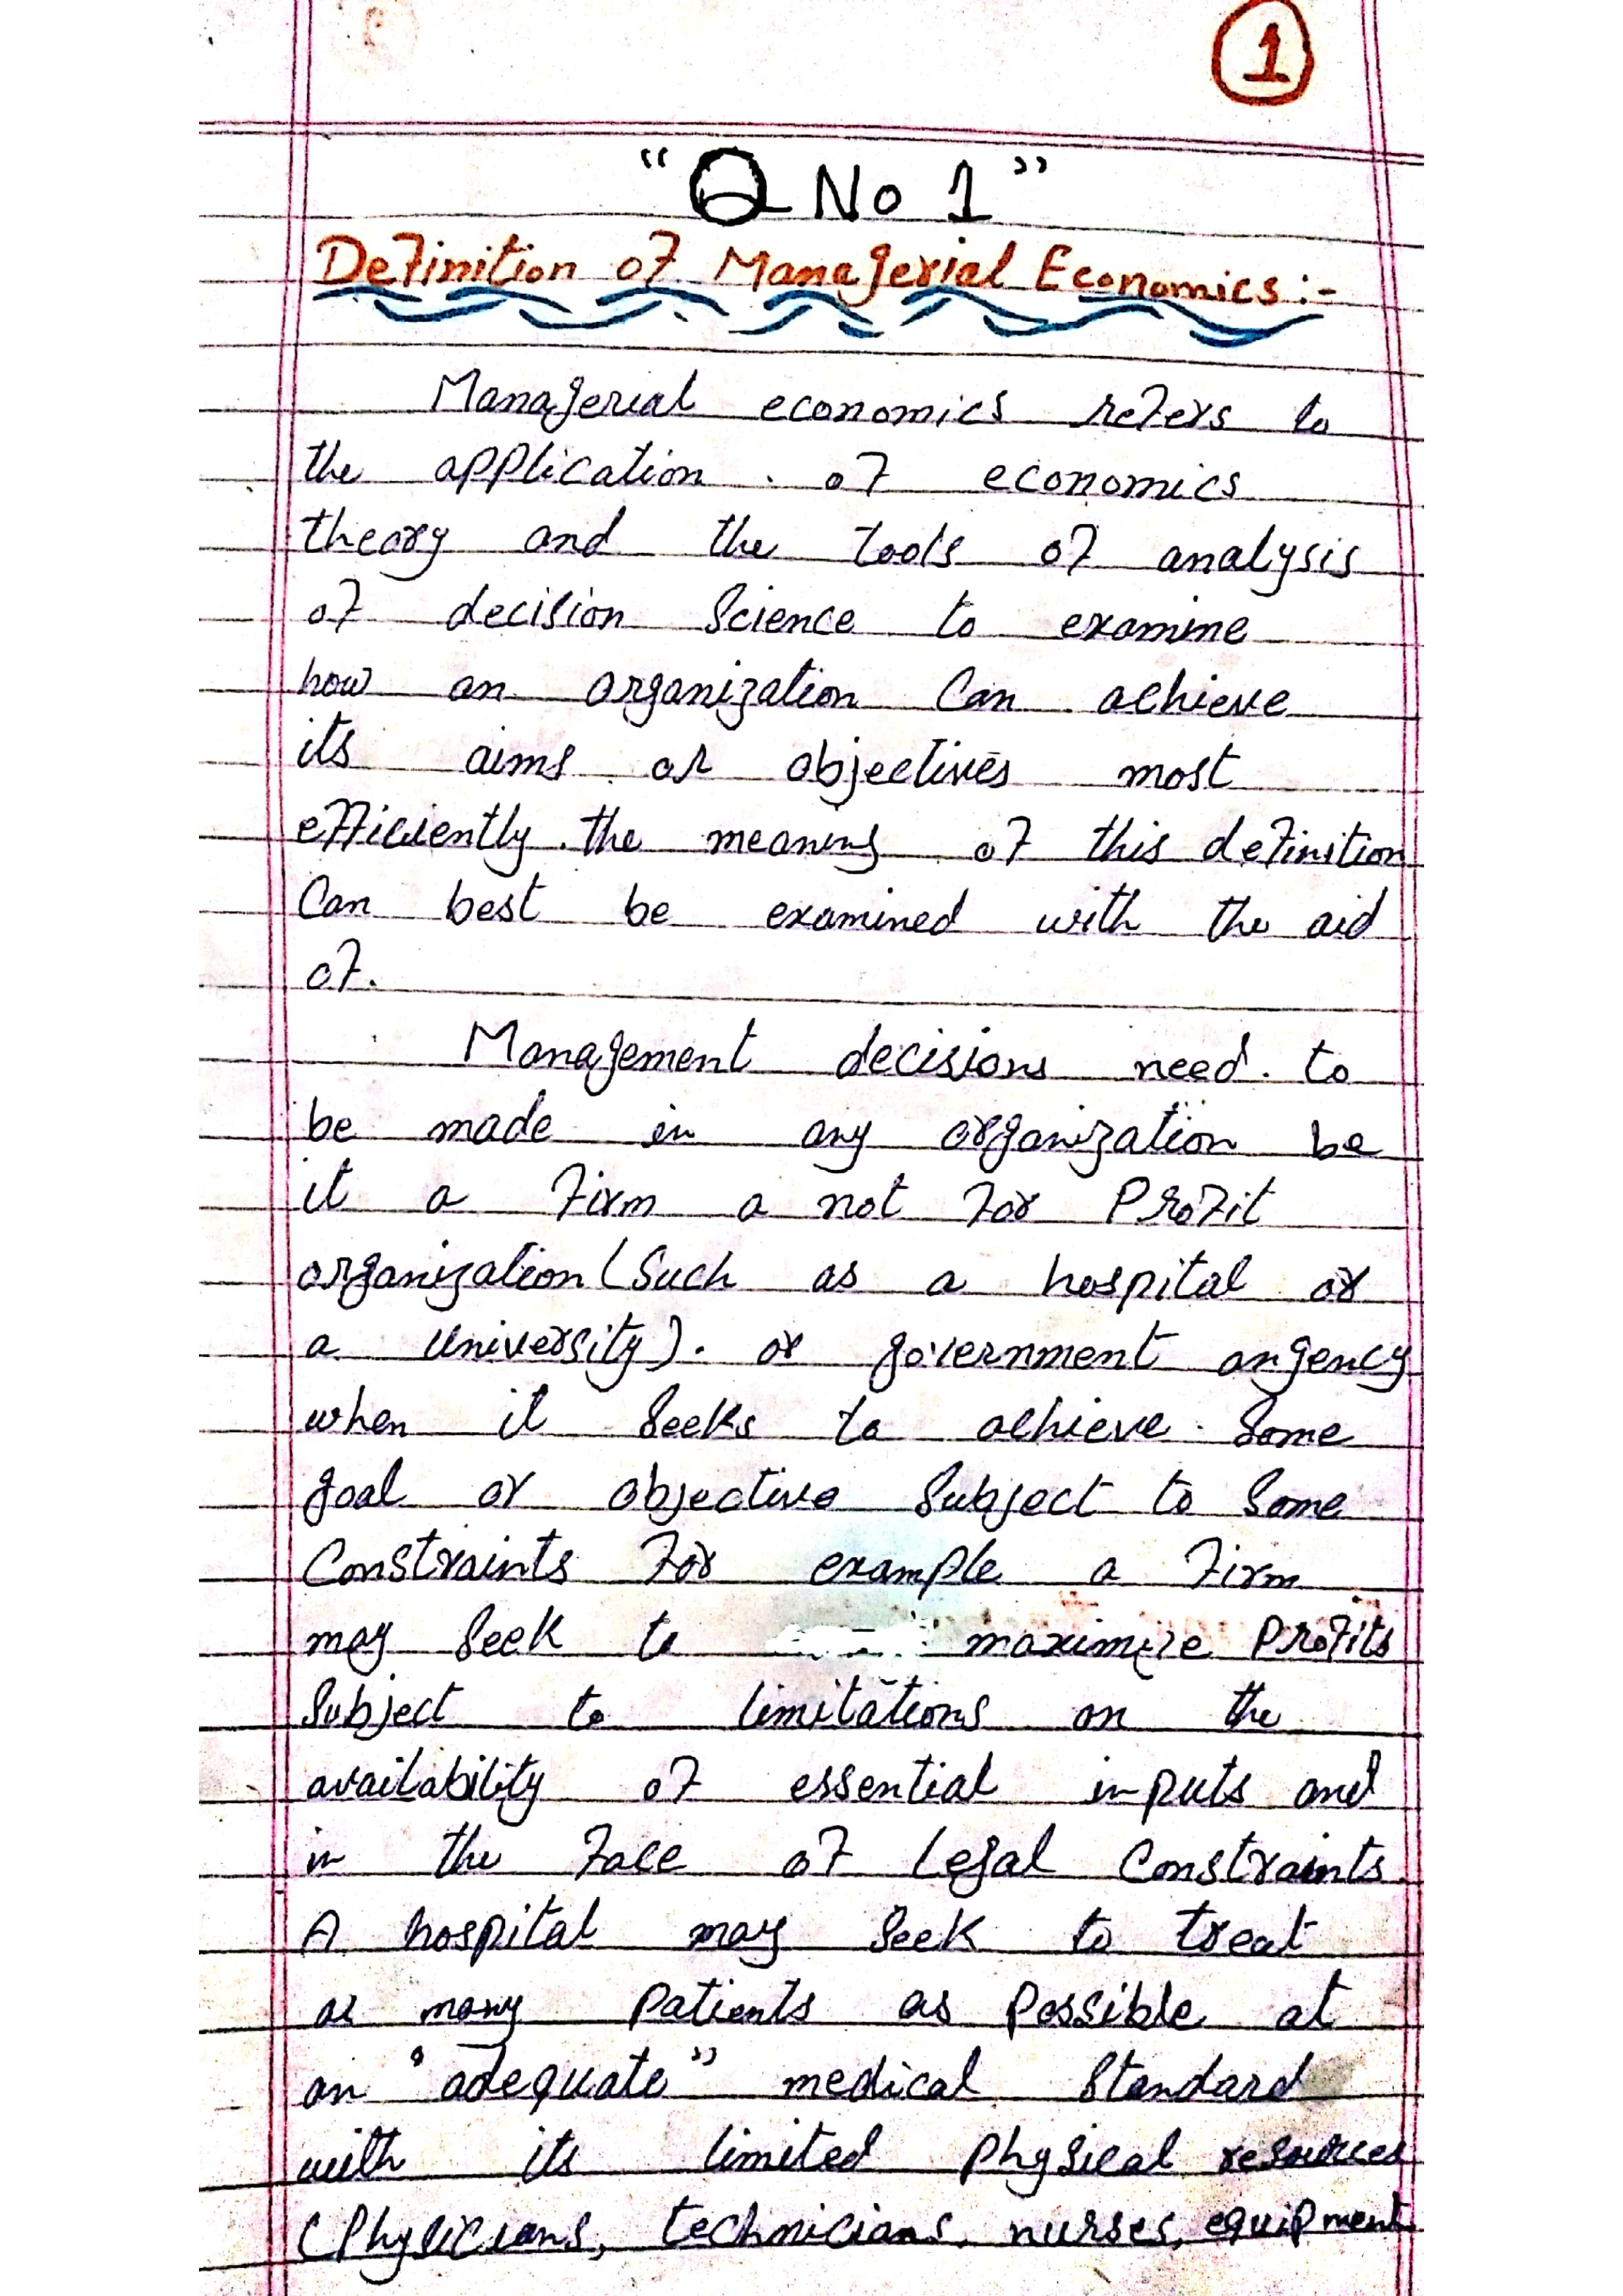 1
"Q No 1"
Definition of Managerial Economics:-
Managerial economics refers to
the application of economics
theory and the tools of analysis
of decision Science to examine
how an organization Can achieve
its aims or objectives most
efficiently. the meaning of this definition
Can best be examined with the aid
of.
Management decisions need to
be made in any organization be
it a Firm a not For Profit
organization (Such as a hospital or
a University). or government angency
when it Seeks to achieve Some
goal or objective Subject to Some
Constraints For example a Firm
may Seek to maximize Profits
Subject to limitations on the
availability of essential inputs and
in the Face of Legal Constraints.
A hospital may Seek to treat
as many Patients as Possible at
an "adequate" medical Standard
with its limited Physical resources
(Physicians, technicians, nurses, equipment